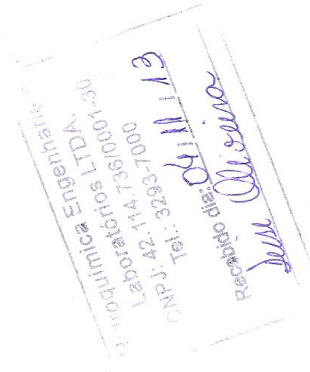 Engenharia
Laboratórios LTDA.
CNPJ: 42.114.736/0001-30
Tel.: 3293-7000
Recebido dia: 04/11/13
Oliveira